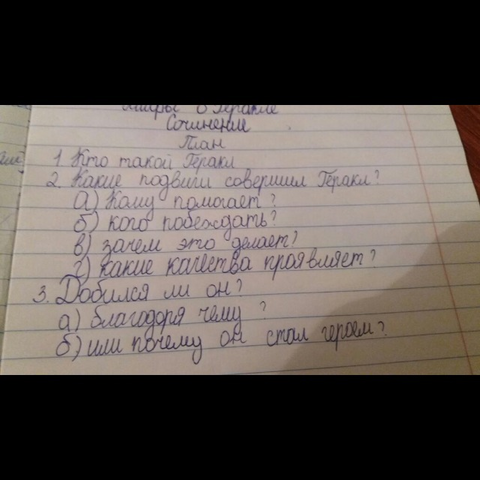 Мифы о Геракле
Сочинение
План
1. Кто такой Геракл
2. Какие подвиги совершил Геракл?
а) Кому помогает?
б) кого побеждать?
в) зачем это делает?
г) какие качества проявляет?
3. Добился ли он?
а) благодоря чему?
б) или почему он стал героем?